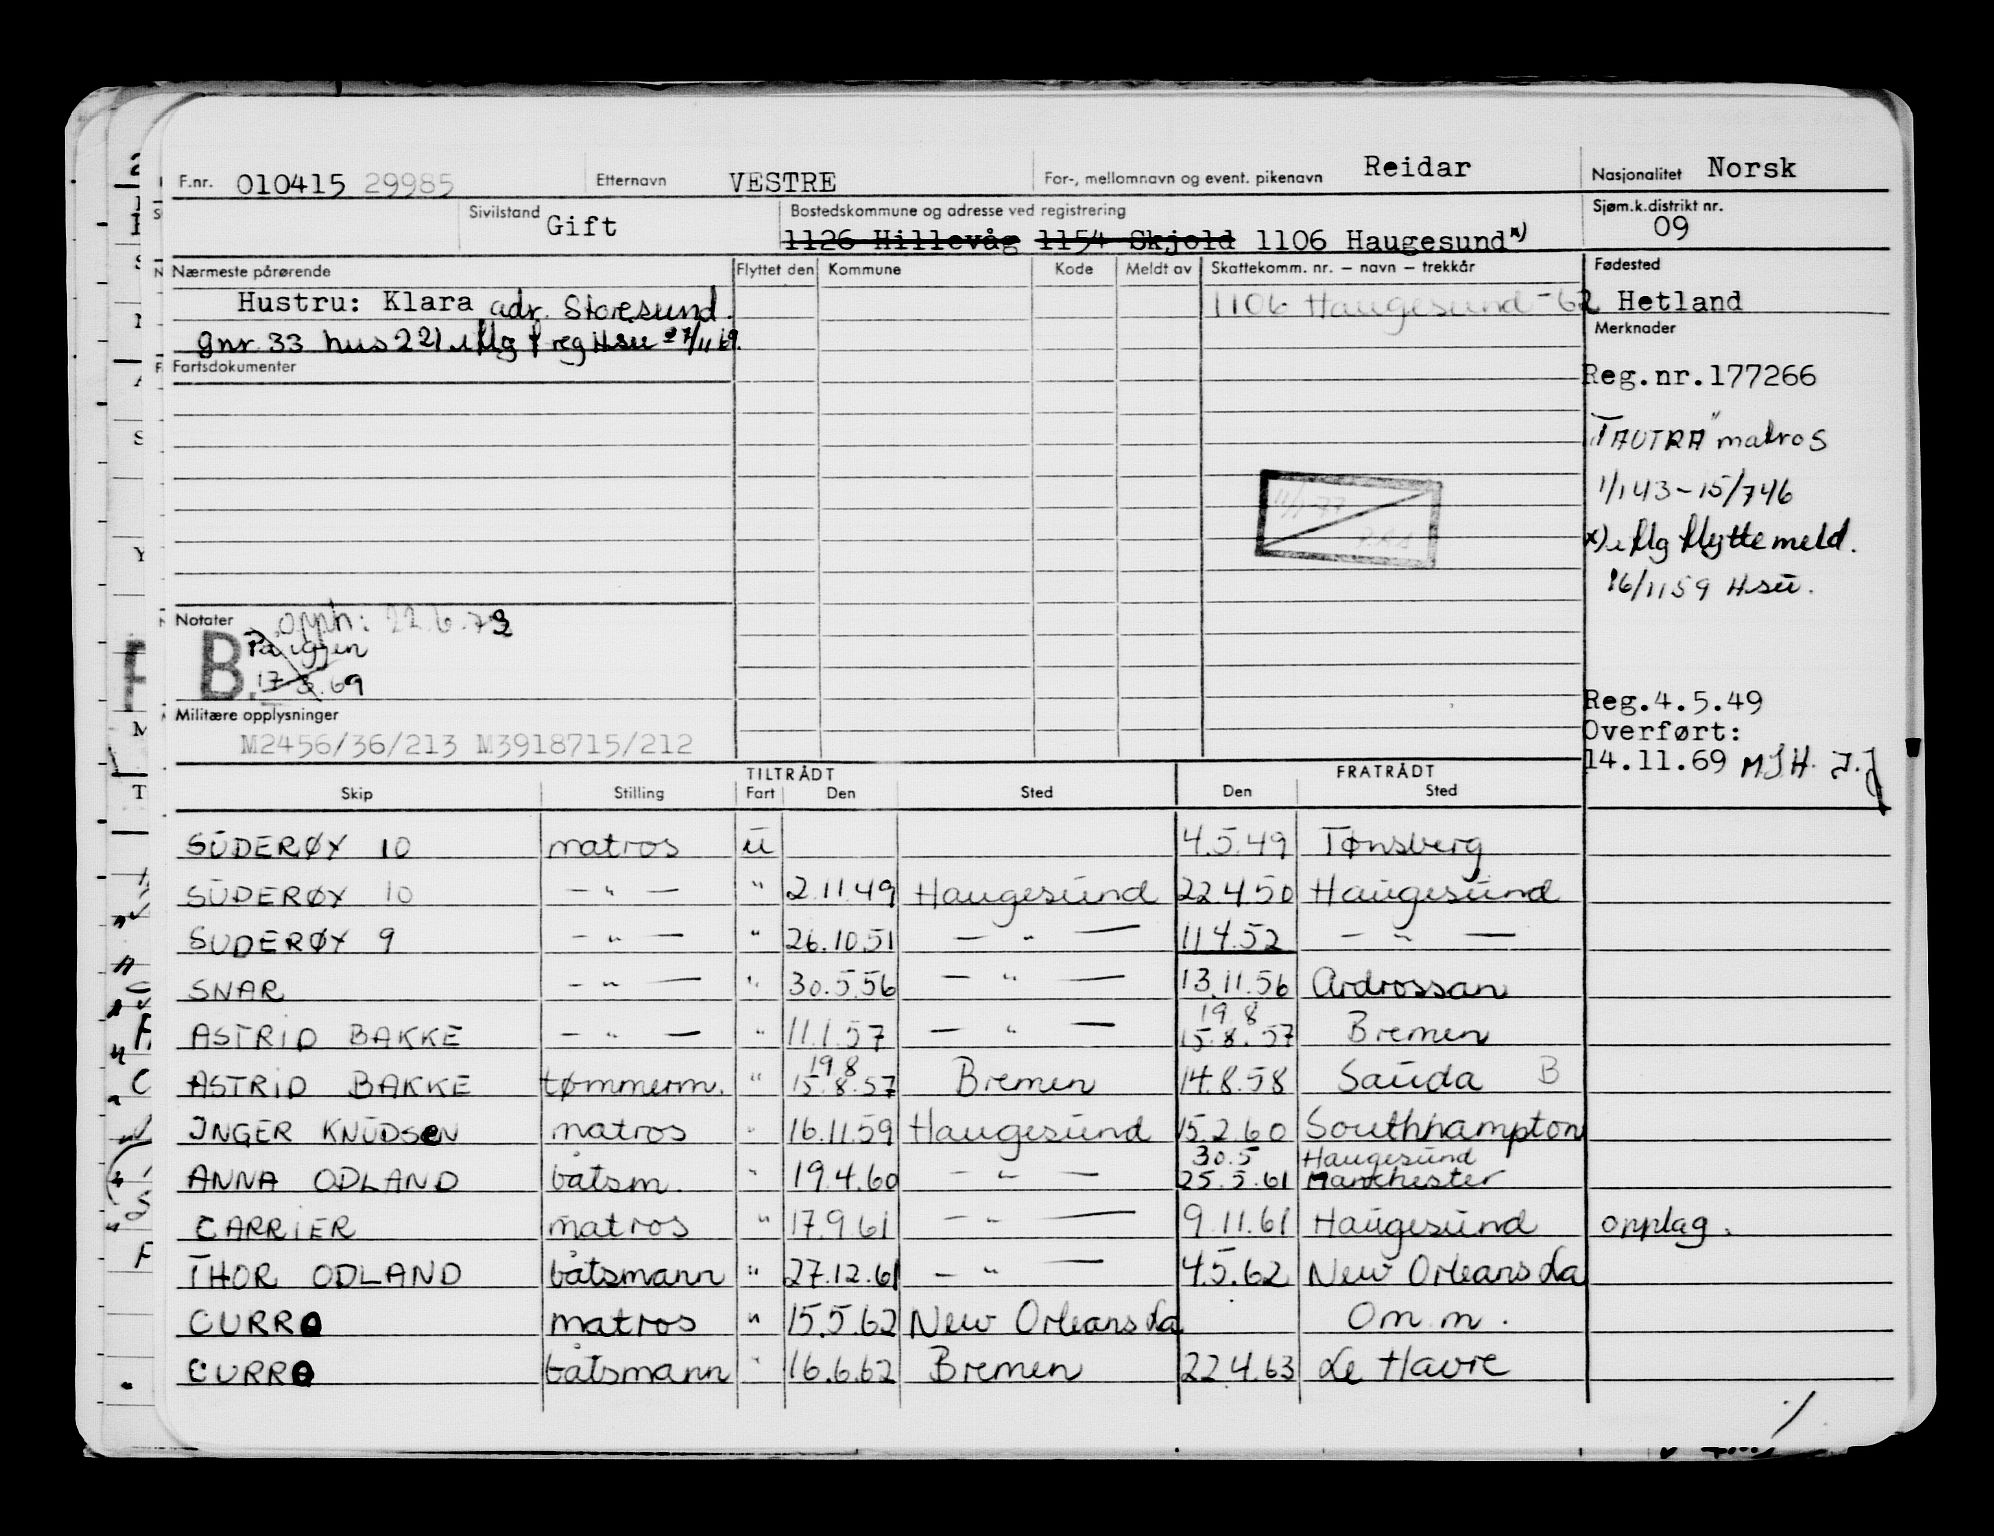 F.nr. 010415 29985 Etternavn VESTRE For-, mellomnavn og event. pikenavn Reidar Nasjonalitet Norsk
Sivilstand Gift Bostedskommune og adresse ved registrering Sjøm.k.distrikt nr. 09
1126 Hillevåg 1154 Skjold 1106 Haugesund x)
Nærmeste pårørende Flyttet den Kommune Kode Meldt av Skattekomm. nr. – navn – trekkår Fødested
Hustru: Klara adr. Storesund. 1106 Haugesund -62 Hetland
gnr 33 hus 221 iflg f reg Hsu 27/11 69. Merknader
Fartsdokumenter
Reg.nr.177266
"TAUTRA" matros
1/1 43 – 15/7 46
x) iflg flyttemeld.
16/11 59 Hsu.
11/1-77
Notater opph: 22.6.72
B. På igjen
17.3.69
Militære opplysninger
M2456/36/213 M3918715/212
Reg.4.5.49
Overført:
14.11.69 MSH. J.J
TILTRÅDT FRATRÅDT
Skip Stilling Fart Den Sted Den Sted
SUDERØY 10 matros u 4.5.49 Tønsberg
SUDERØY 10 – " – " 2.11.49 Haugesund 22.4.50 Haugesund
SUDERØY 9 – " – " 26.10.51 – " – 11.4.52 – " –
SNAR – " – " 30.5.56 – " – 13.11.56 Ardrossan
19 8
ASTRID BAKKE – " – " 11.1.57 – " – 15.8.57 Bremen
19 8
ASTRID BAKKE tømmerm. " 15.8.57 Bremen 14.8.58 Sauda B
INGER KNUDSEN matros " 16.11.59 Haugesund 15.2.60 Southhampton
30.5 Haugesund
ANNA ODLAND båtsm. " 19.4.60 – " – 25.5.61 Manchester
CARRIER matros " 17.9.61 – " – 9.11.61 Haugesund opplag.
THOR ODLAND båtsmann " 27.12.61 – " – 4.5.62 New Orleans La
CURRO matros " 15.5.62 New Orleans La Om.m.
CURRO båtsmann " 16.6.62 Bremen 22.4.63 Le Havre
./.